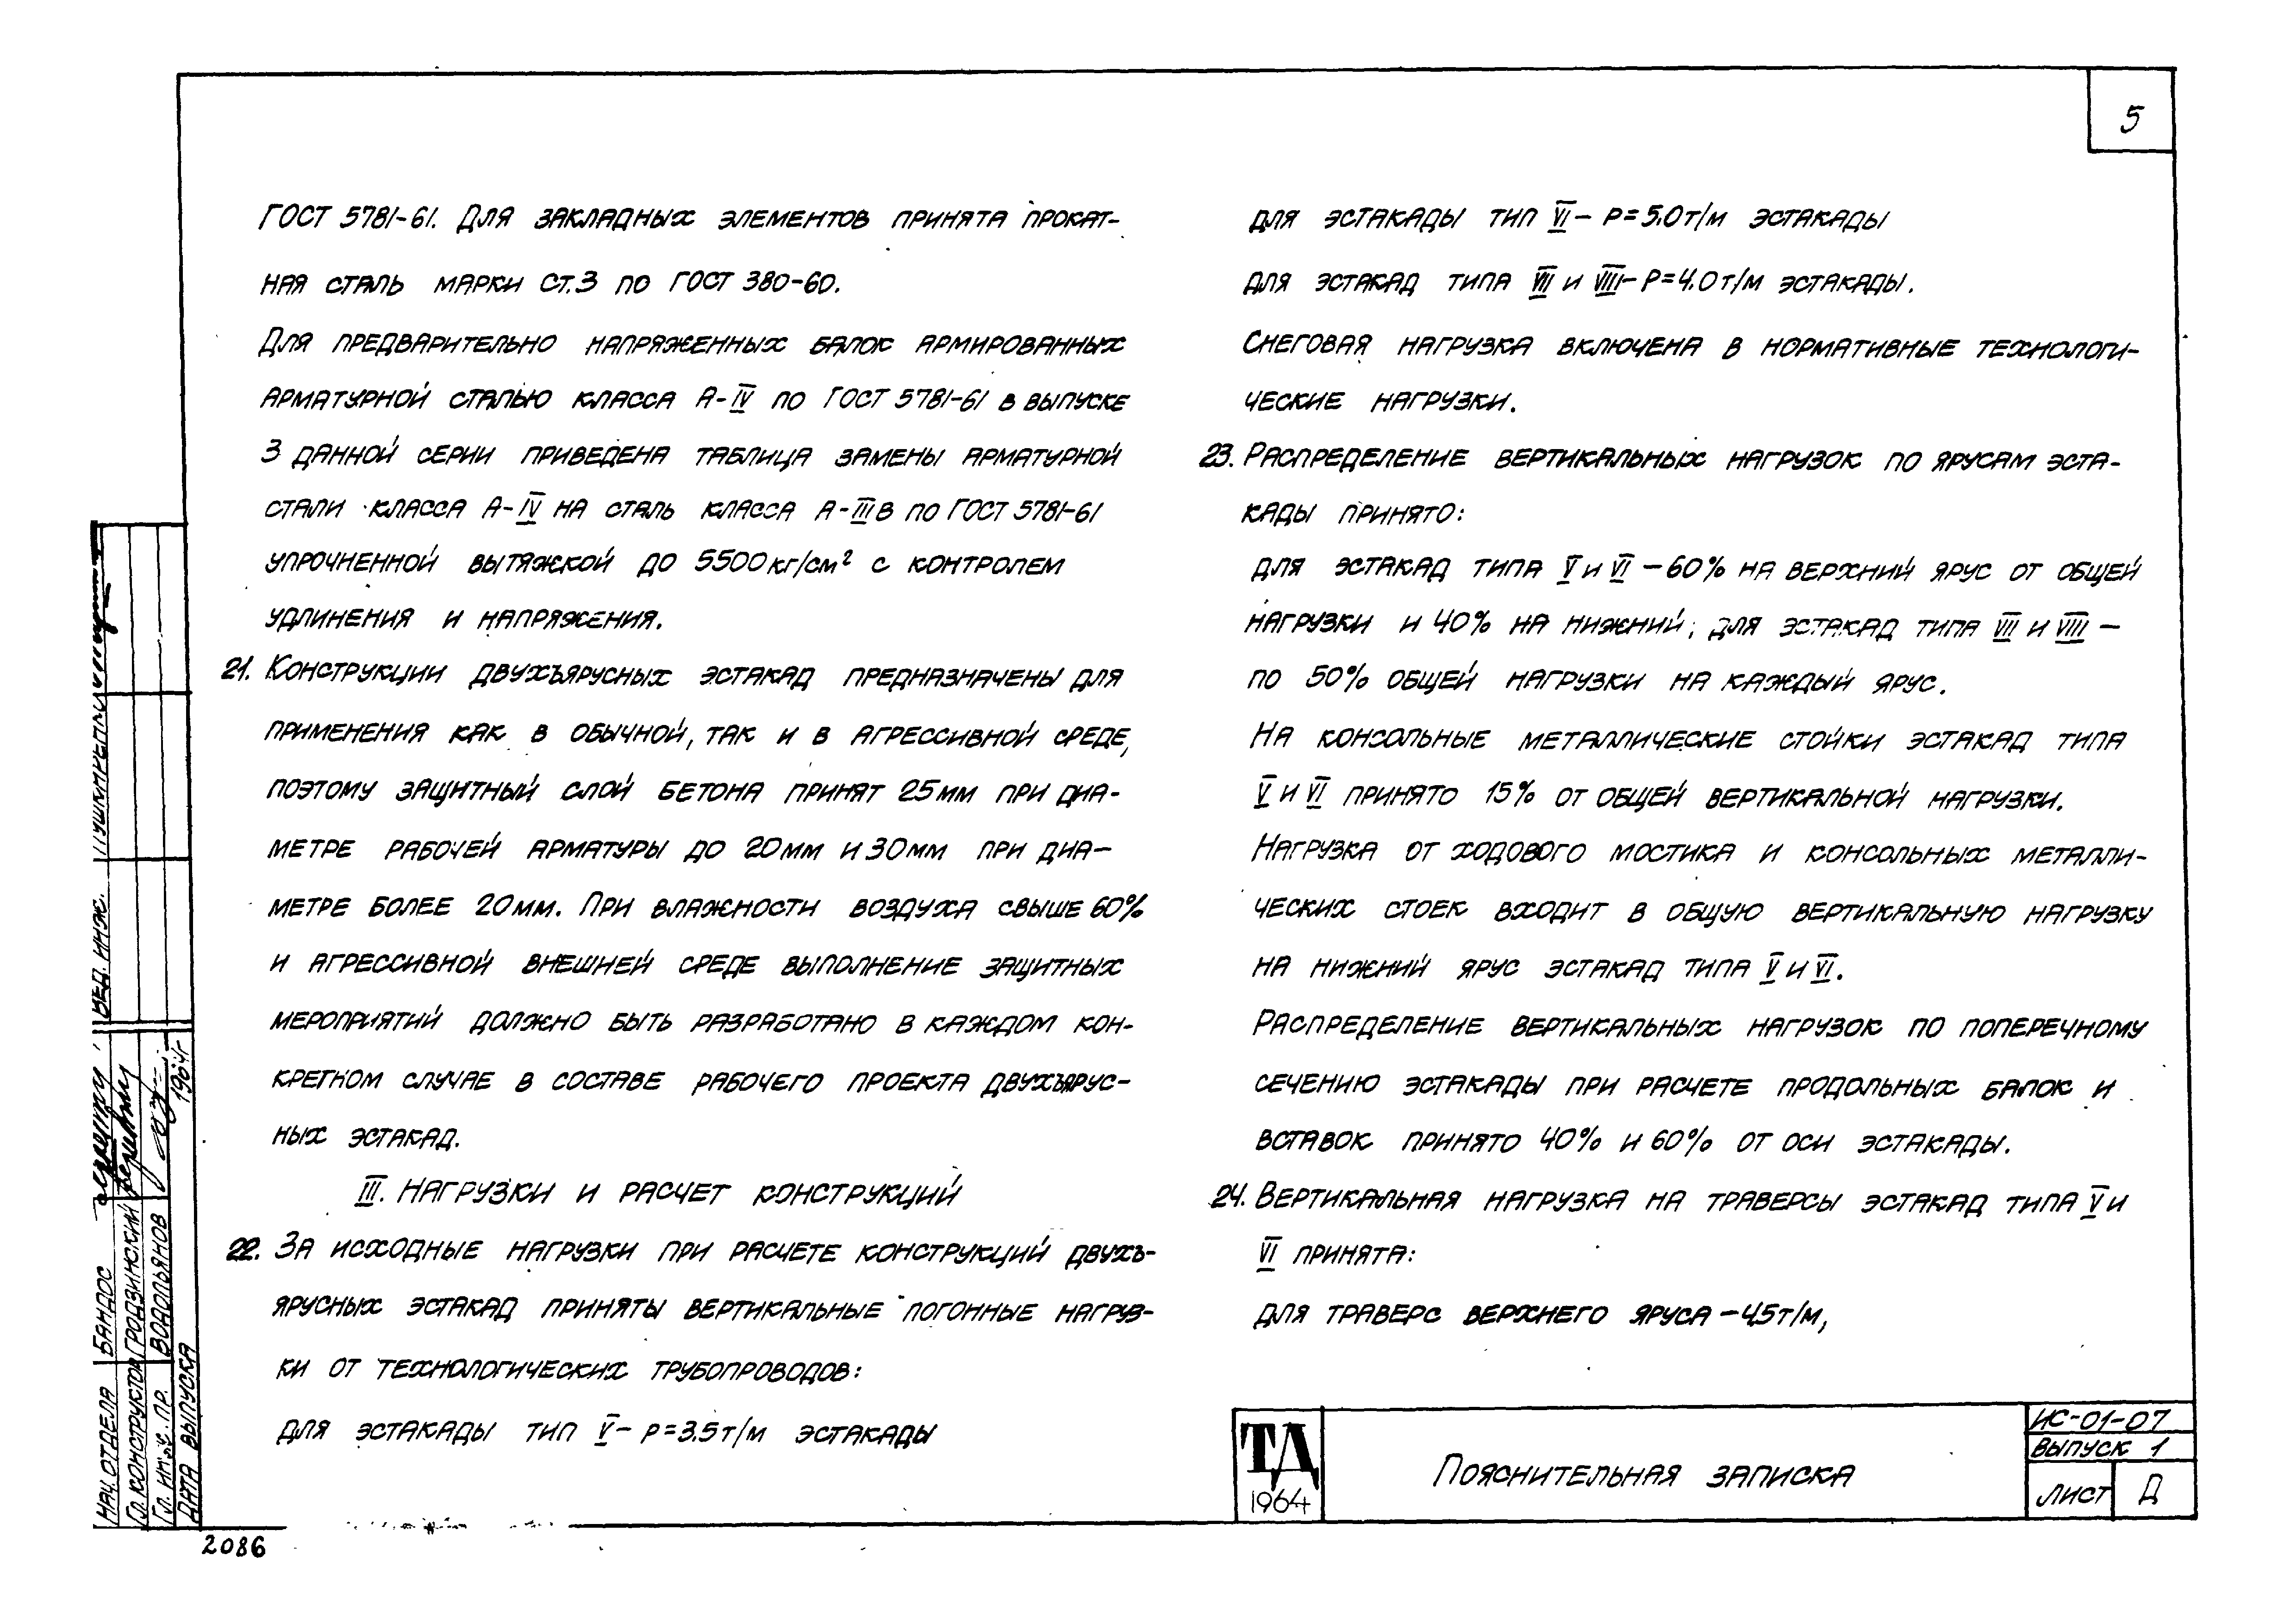 5
ГОСТ 5781-61. Для закладных элементов принята прокат-
ная сталь марки Ст.3 по ГОСТ 380-60.
Для предварительно напряженных балок армированных
арматурной сталью класса А-IV по ГОСТ 5781-61 в выпуске
3 данной серии приведена таблица замены арматурной
стали класса А-IV на сталь класса А-IIIв по ГОСТ 5781-61
упрочненной вытяжкой до 5500 кг/см² с контролем
удлинения и напряжения.
21. Конструкции двухъярусных эстакад предназначены для
применения как в обычной, так и в агрессивной среде,
поэтому защитный слой бетона принят 25мм при диа-
метре рабочей арматуры до 20мм и 30мм при диа-
метре более 20мм. При влажности воздуха свыше 60%
и агрессивной внешней среде выполнение защитных
мероприятий должно быть разработано в каждом кон-
кретном случае в составе рабочего проекта двухъярус-
ных эстакад.
III. Нагрузки и расчет конструкций
22. За исходные нагрузки при расчете конструкций двухъ-
ярусных эстакад приняты вертикальные погонные нагруз-
ки от технологических трубопроводов:
для эстакады тип V – P=3.5т/м эстакады
для эстакады тип VI – P=5.0т/м эстакады
для эстакад типа VII и VIII – P=4.0т/м эстакады.
Снеговая нагрузка включена в нормативные технологи-
ческие нагрузки.
23. Распределение вертикальных нагрузок по ярусам эста-
кады принято:
для эстакад типа V и VI – 60% на верхний ярус от общей
нагрузки и 40% на нижний; для эстакад типа VII и VIII –
по 50% общей нагрузки на каждый ярус.
На консольные металлические стойки эстакад типа
V и VI принято 15% от общей вертикальной нагрузки.
Нагрузка от ходового мостика и консольных металли-
ческих стоек входит в общую вертикальную нагрузку
на нижний ярус эстакад типа V и VI.
Распределение вертикальных нагрузок по поперечному
сечению эстакады при расчете продольных балок и
вставок принято 40% и 60% от оси эстакады.
24. Вертикальная нагрузка на траверсы эстакад типа V и
VI принята:
для траверс верхнего яруса – 4,5т/м,
ТД
1964
Пояснительная записка
ИС-01-07
Выпуск 1
Лист Д
Нач. отдела Бандос
Гл. конструктор Гродзинский
Гл. инж. пр. Водопьянов
Дата выпуска 1964г
Вед. инж.
2086